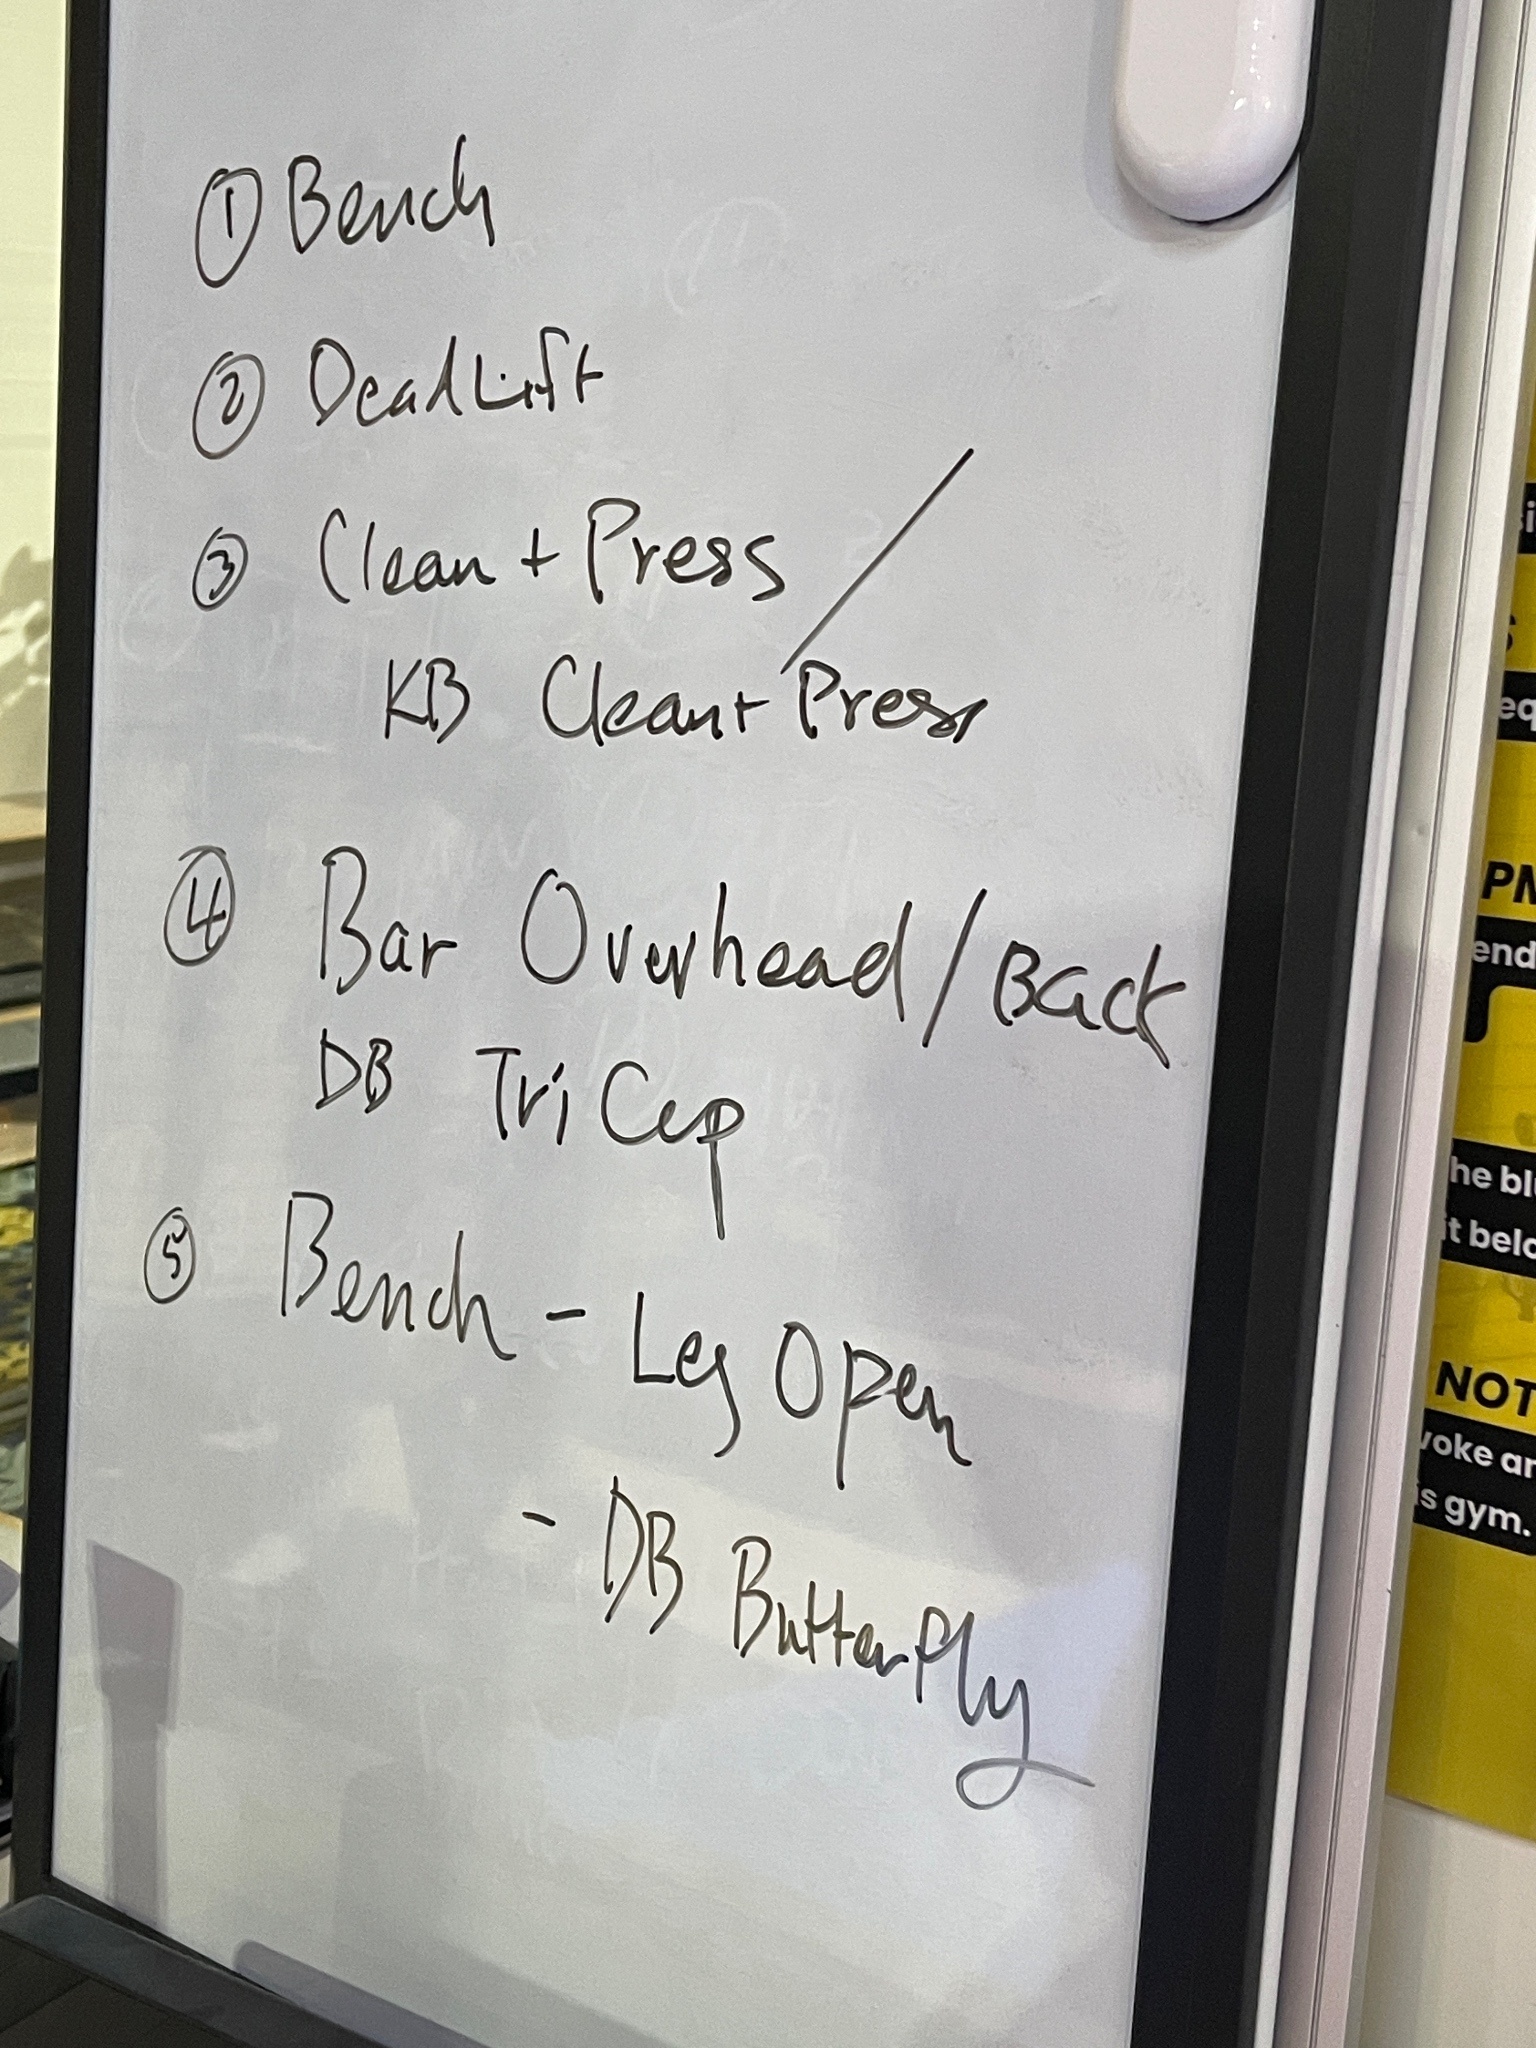 ① Bench
② DeadLift
③ Clean + Press /
KB Clean + Press
④ Bar Overhead / Back
DB Tri Cep
⑤ Bench - Leg Open
- DB Butterfly
PM
end
NOT
is gym.